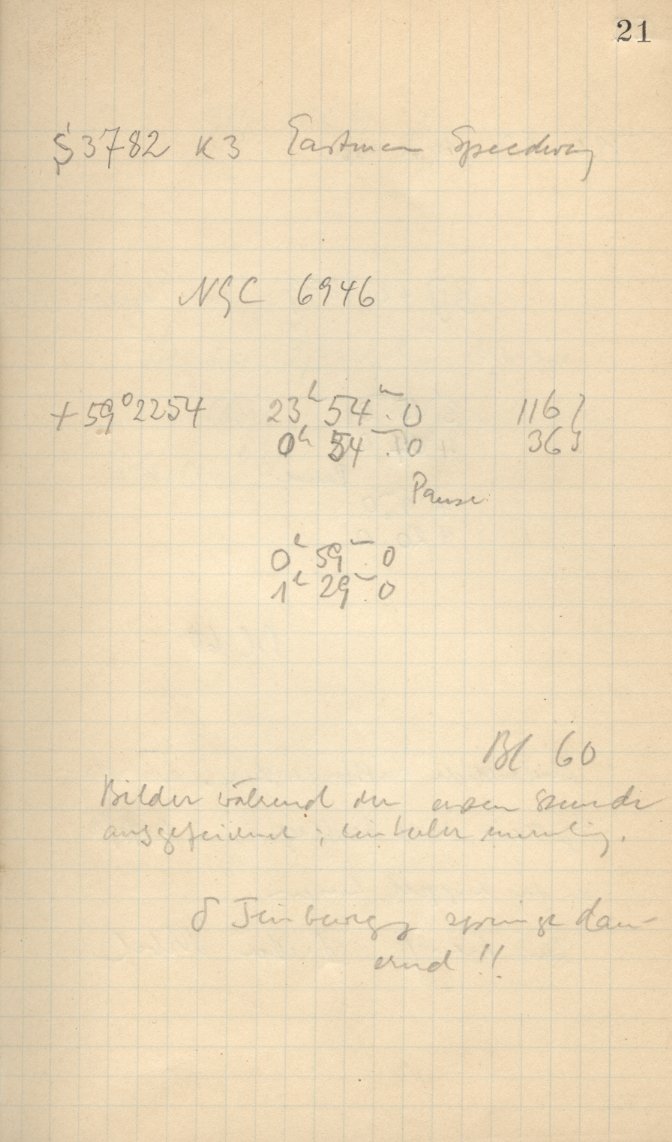 21
S 3782 K 3 Eastman Speedway
NGC 6946
+59°2254 23h 54m.0 116 }
0h 54m.0 36 }
Pause
0h 59m.0
1h 29m.0
Bl 60
Bilder während der ersten Stunde
ausgezeichnet;
δ Feinbewegg springt dau-
ernd!!